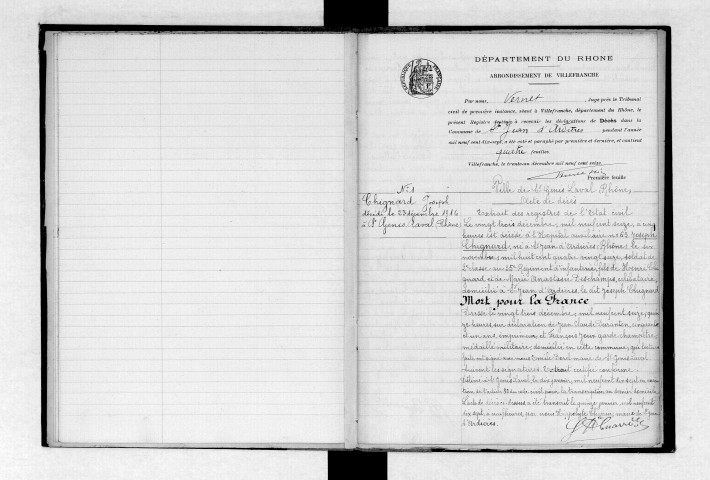 DÉPARTEMENT DU RHONE
ARRONDISSEMENT DE VILLEFRANCHE
Par nous, Vernet, Juge près le Tribunal
civil de première instance, séant à Villefranche, département du Rhône, le
présent Registre destiné à recevoir les déclarations de Décès dans la
Commune de St Jean d'Ardières pendant l'année
mil neuf cent dix-sept, a été coté et paraphé par première et dernière, et contient
quatre feuilles.
Villefranche, le trente-un décembre mil neuf cent seize.
Première feuille
N° 1
Chignard Joseph
décédé le 23 décembre 1916
à St Genis Laval Rhône
Ville de St Genis Laval Rhône
Acte de décès
Extrait des registres de l'Etat civil
Le vingt trois décembre, mil neuf cent seize, à
heures est décédé à l'Hôpital auxiliaire n° 63 Joseph
Chignard, né à St Jean d'Ardières (Rhône) le six
novembre, mil huit cent quatre vingt seize, soldat de
2e classe au 35e Régiment d'infanterie, fils de Henri Chi-
gnard et de Marie Anastasie Deschamps, célibataire,
domicilié à St Jean d'Ardières, le dit Joseph Chignard
Mort pour la France
Dressé le vingt trois décembre, mil neuf cent seize,
heures sur déclaration de Jean Claude cinquante
et un ans, et François garde champêtre
médaillé militaire, domiciliés en cette commune, qui lecture
faite ont signé avec nous Emile maire de St Genis Laval
Suivent les signatures Extrait certifié conforme
Délivré à St Genis Laval le dix janvier, mil neuf cent dix sept en exécu-
tion de l'article 82 du code civil pour la transcription au dernier domicile
L'acte de décès ci-dessus a été transcrit le quinze janvier, mil neuf cent
dix sept, à neuf heures, par nous Hippolyte maire de St Jean
d'Ardières.